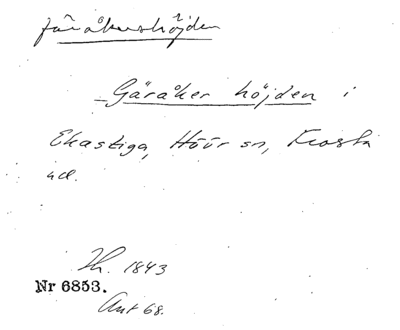 Gäråkershöjden
Gäråker höjden i
Ekastiga, Höör sn, Frosta
hd.
Th. 1843
Nr 6853.
Ant 68.